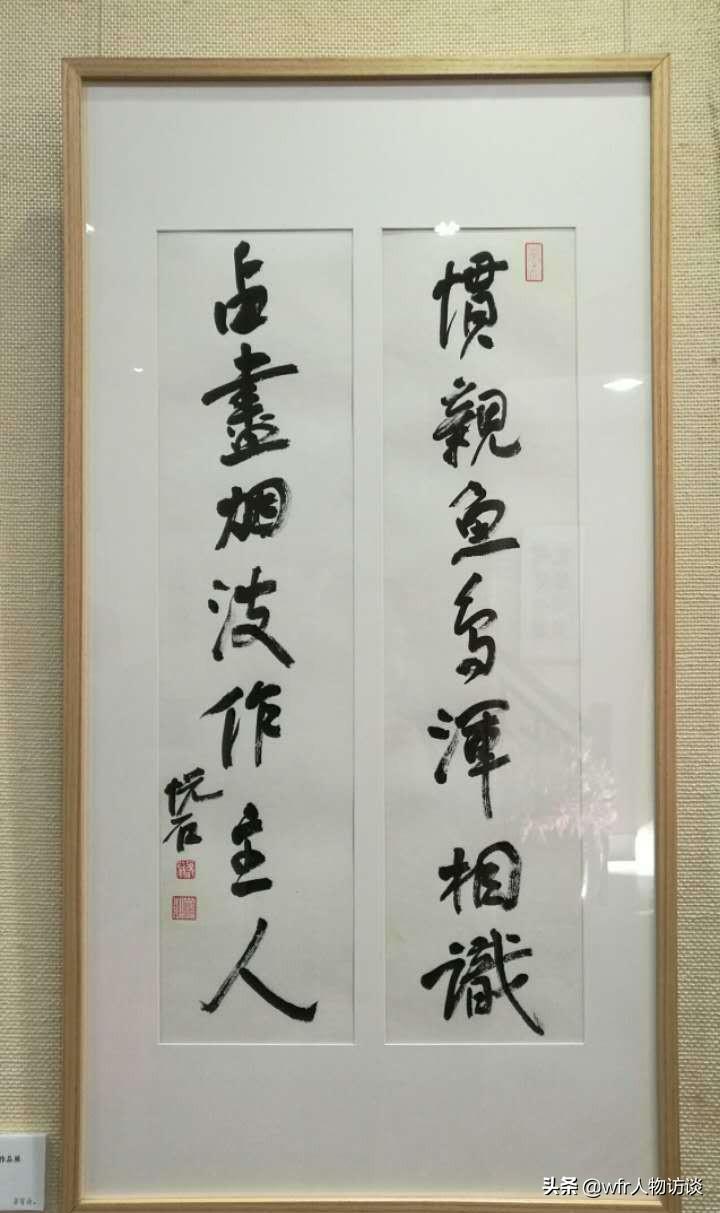 慣親魚鳥渾相識
占盡烟波作主人
作品展
头条 @wfr人物访谈